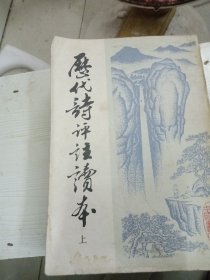 歷代詩评註讀本
上